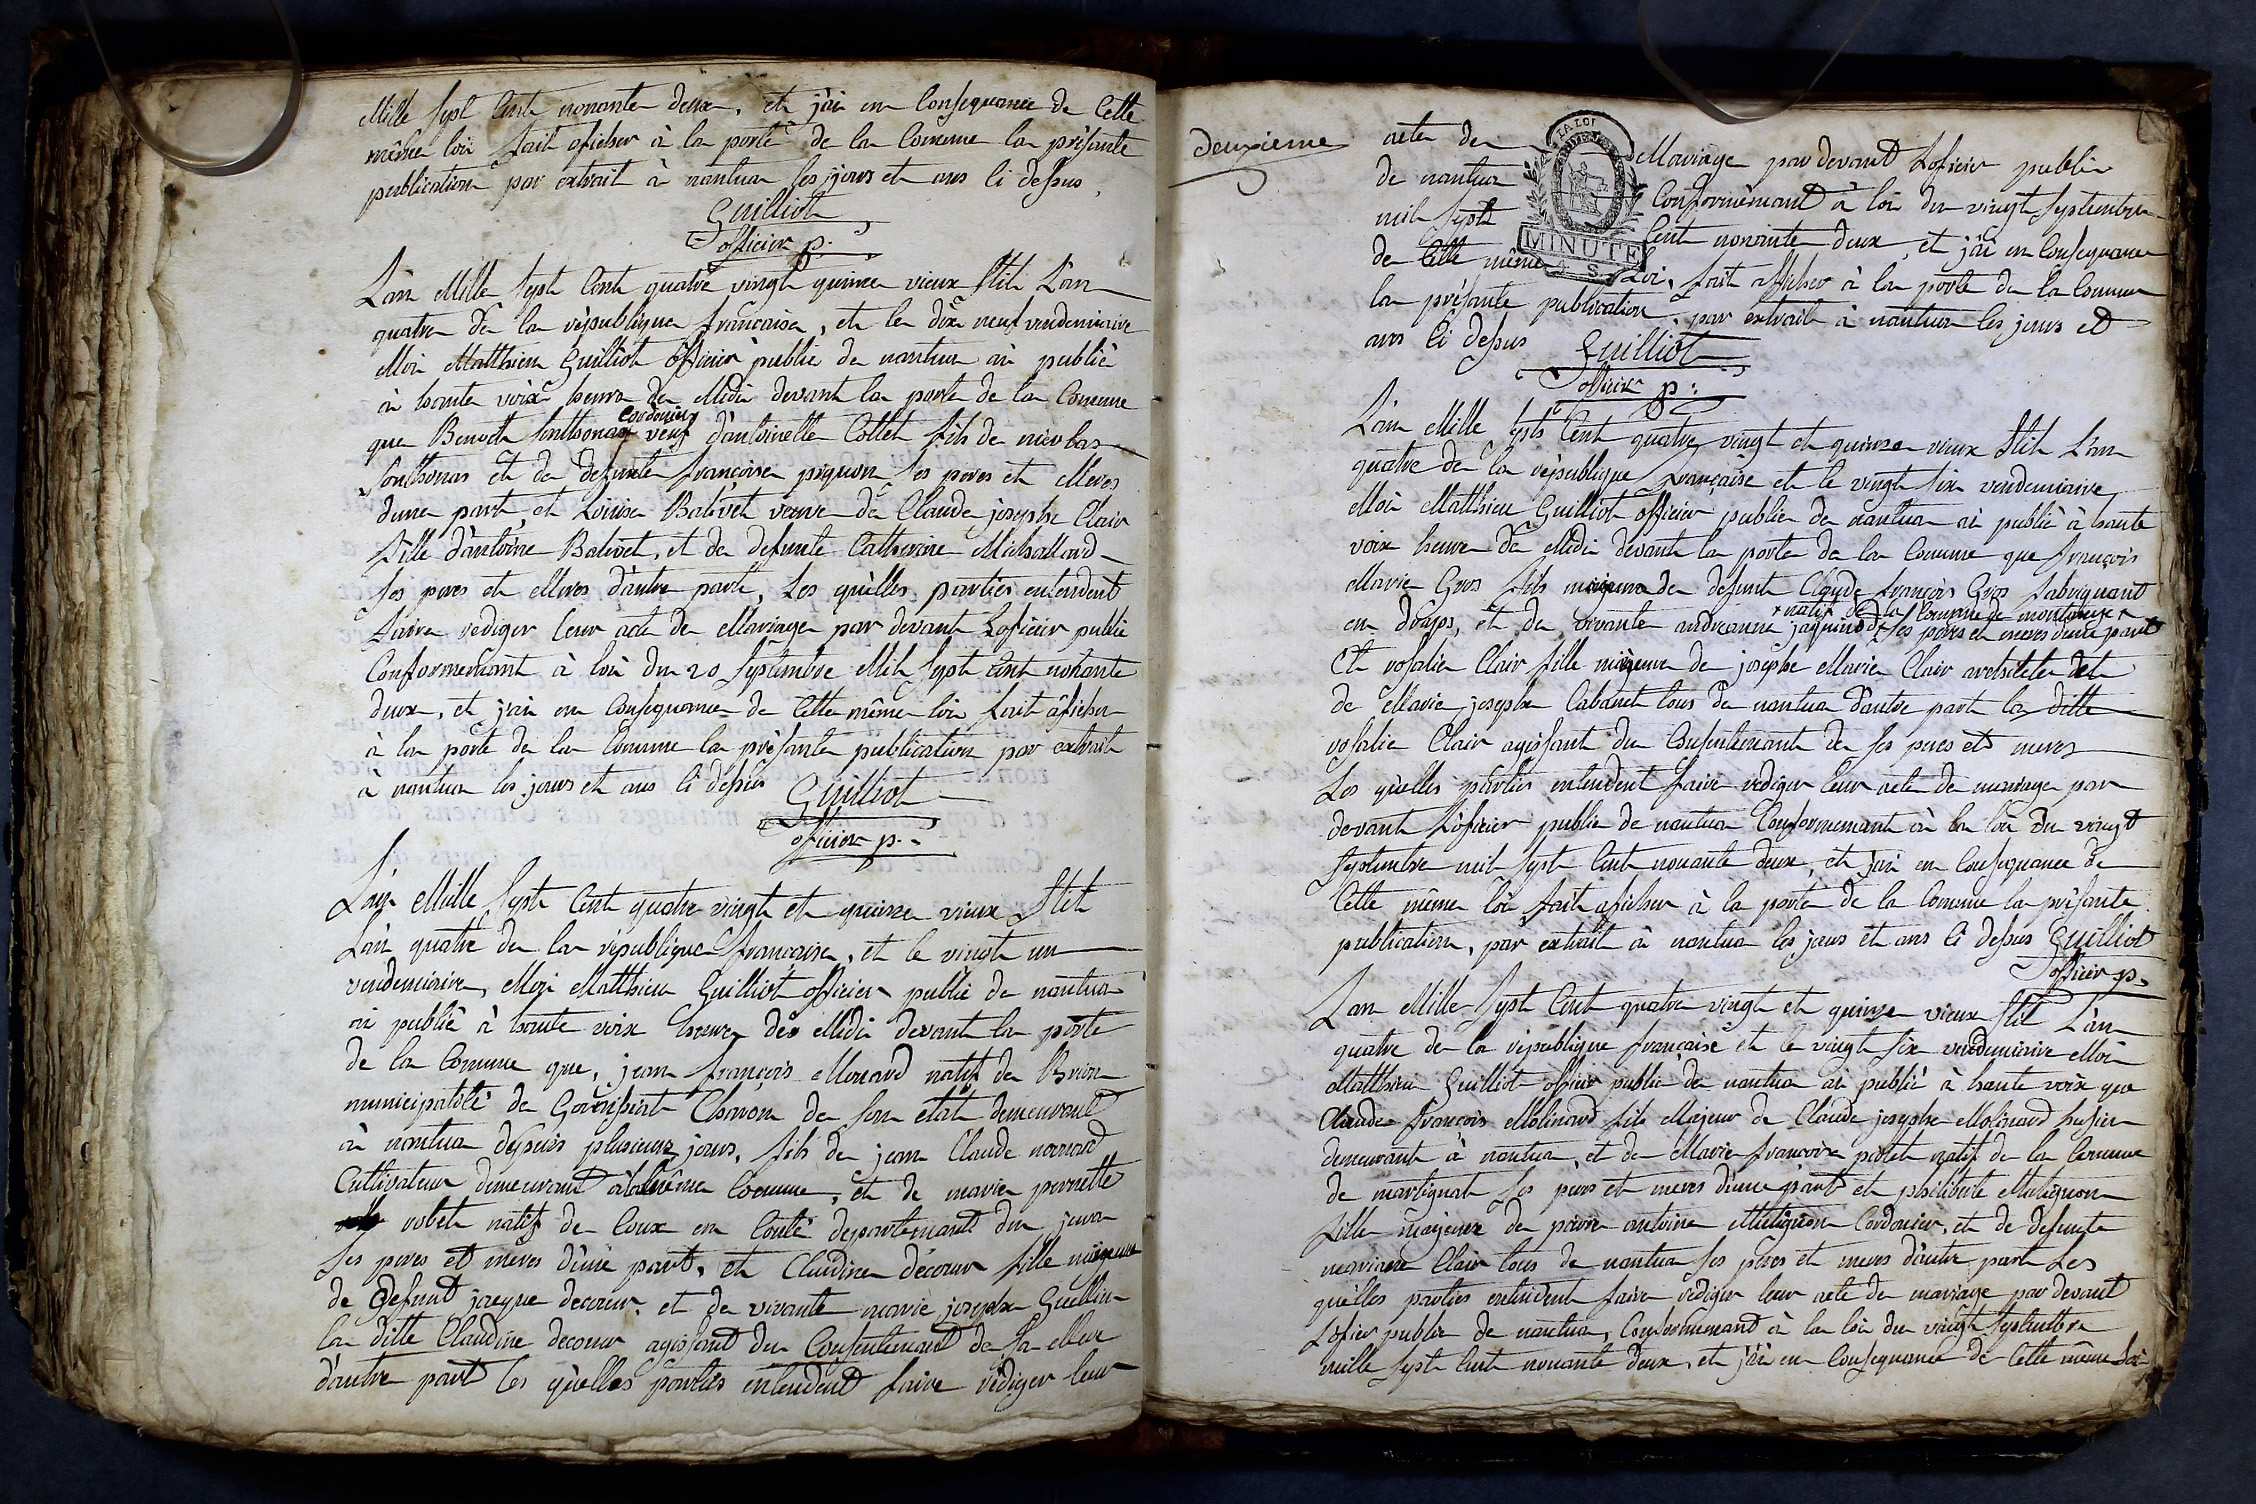 Mille sept Cent nonante deux, et j'ai en Consequance de Cette
même loi fait aficher à la porte de la Comune la présante
publication par extrait à nantua les jours et ans Ci dessus,
Guilliot
officier p.
L'an Mille sept Cent quatre vingt quinze vieux stile L'an
quatre de la république française, et le dix neuf vendemiaire
Moi Matthieu Guilliot officier public de nantua ai publié
à haute voix heure de Midi devant la porte de la Comune
cordonier
que Benoit Sonthonax veuf d'antoinette Collet fils de nicolas
Sonthonax et de defunte françoise pignon ses peres et Meres
dune part, et Louise Balivet veuve de Claude josephe Clair
fille d'antoine Balivet, et de defunte Catherine Michallard
ses peres et Meres d'autre part, Les quèlles parties entendent
faire rediger leur acte de Mariage par devant Loficier public
Conformemant à loi du 20 septembre Mil sept Cent nonante
deux, et j'ai en Consequance de Cette même loi fait aficher
à la porte de la Comune la présante publication par extrait
à nantua les jours et ans Ci dessus Guilliot
officier p.
L'an Mille sept Cent quatre vingt et quinze vieux stile
L'an quatre de la république française, et le vingt un
vendemiaire, Moi Matthieu Guilliot officier public de nantua
ai publié à haute voix heure de Midi devant la porte
de la Comune que, jean françois Monard natif de Brion
municipalité de Charron de son état demeurant
à nantua depuis plusieurs jours, fils de jean Claude monard
Cultivateur demeurant à la même Comune, et de marie pernette
robet natif de Coux en Conté departemant du jura
ses peres et mères d'une part, et Claudine decoeur fille mineure
de defunt jacque decoeur, et de vivante marie josephe Guillin
la ditte Claudine decoeur agissant du Consentemant de sa Mere
d'autre part les quèlles parties entendent faire rédiger leur
deuxieme
acte de Mariage par devant Loficier public
de nantua Conformémant à loi du vingt septembre
mil sept Cent nonante deux, et j'ai en Consequance
de Cette même Loi, fait afficher à la porte de la Comune
la présante publication, par extrait à nantua les jours et
ans Ci dessus Guilliot
officier p.
LA LOI
MINUTE
4 S.
L'an Mille sept Cent quatre vingt et quinze vieux stile L'an
quatre de la république française et le vingt six vendemiaire
Moi Matthieu Guilliot officier public de nantua ai publié à haute
voix heure de Midi devant la porte de la Comune que françois
Marie Gros fils majeur de defunt Claude françois Gros fabriquant
natif de la Comune de montreux
en draps, et de vivante andreanne ses pères et meres dune part
Et rosalie Clair fille mineure de josephe Marie Clair architete et
de Marie josephe Cabanet tous de nantua d'autre part la ditte
rosalie Clair agissant du Consentemant de ses peres et meres
Les quèlles parties entendent faire rediger leur acte de mariage par
devant Loficier public de nantua Conformemant à la loi du vingt
septembre mil sept Cent nonante deux, et j'ai en Consequance de
Cette même loi fait aficher à la porte de la Comune la présante
publication, par extrait à nantua les jours et ans Ci dessus Guilliot
officier p.
L'an Mille sept Cent quatre vingt et quinze vieux stil L'an
quatre de la république française et le vingt six vendemiaire Moi
Matthieu Guilliot officier public de nantua ai publié à haute voix que
Claude françois Molinard fils Majeur de Claude josephe Molinard husier
demeurant à nantua, et de Marie françoise natif de la Comune
de martignat ses peres et meres dune part et philiberte Matignon
fille majeure de pierre antoine Matignon Cordonier, et de defunte
mariane Clair tous de nantua ses pères et meres d'autre part Les
quèlles parties entendent faire rediger leur acte de mariage par devant
Loficier public de nantua, Conformemant à la loi du vingt septembre
mille sept Cent nonante deux, et j'ai en Consequance de Cette même loi